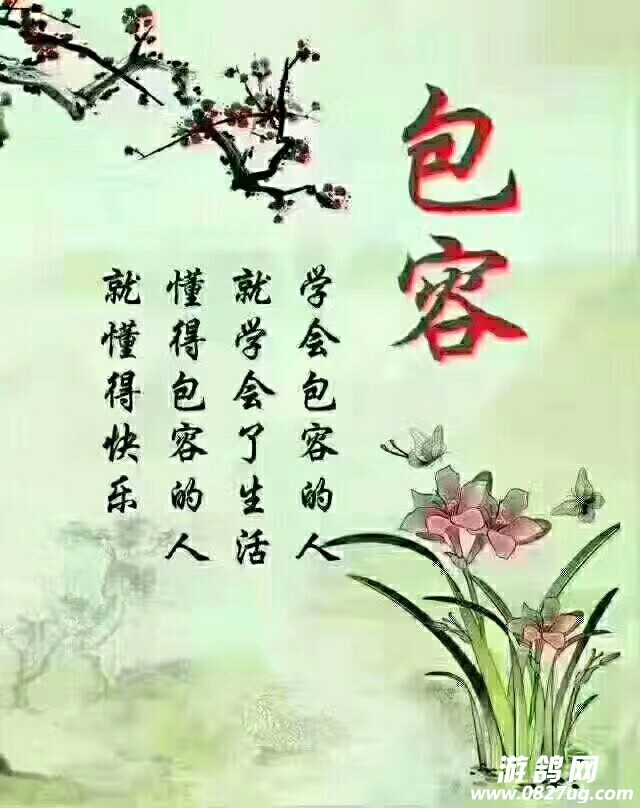 包容
学会包容的人
就学会了生活
懂得包容的人
就懂得快乐
游鸽网
www.0827ug.com